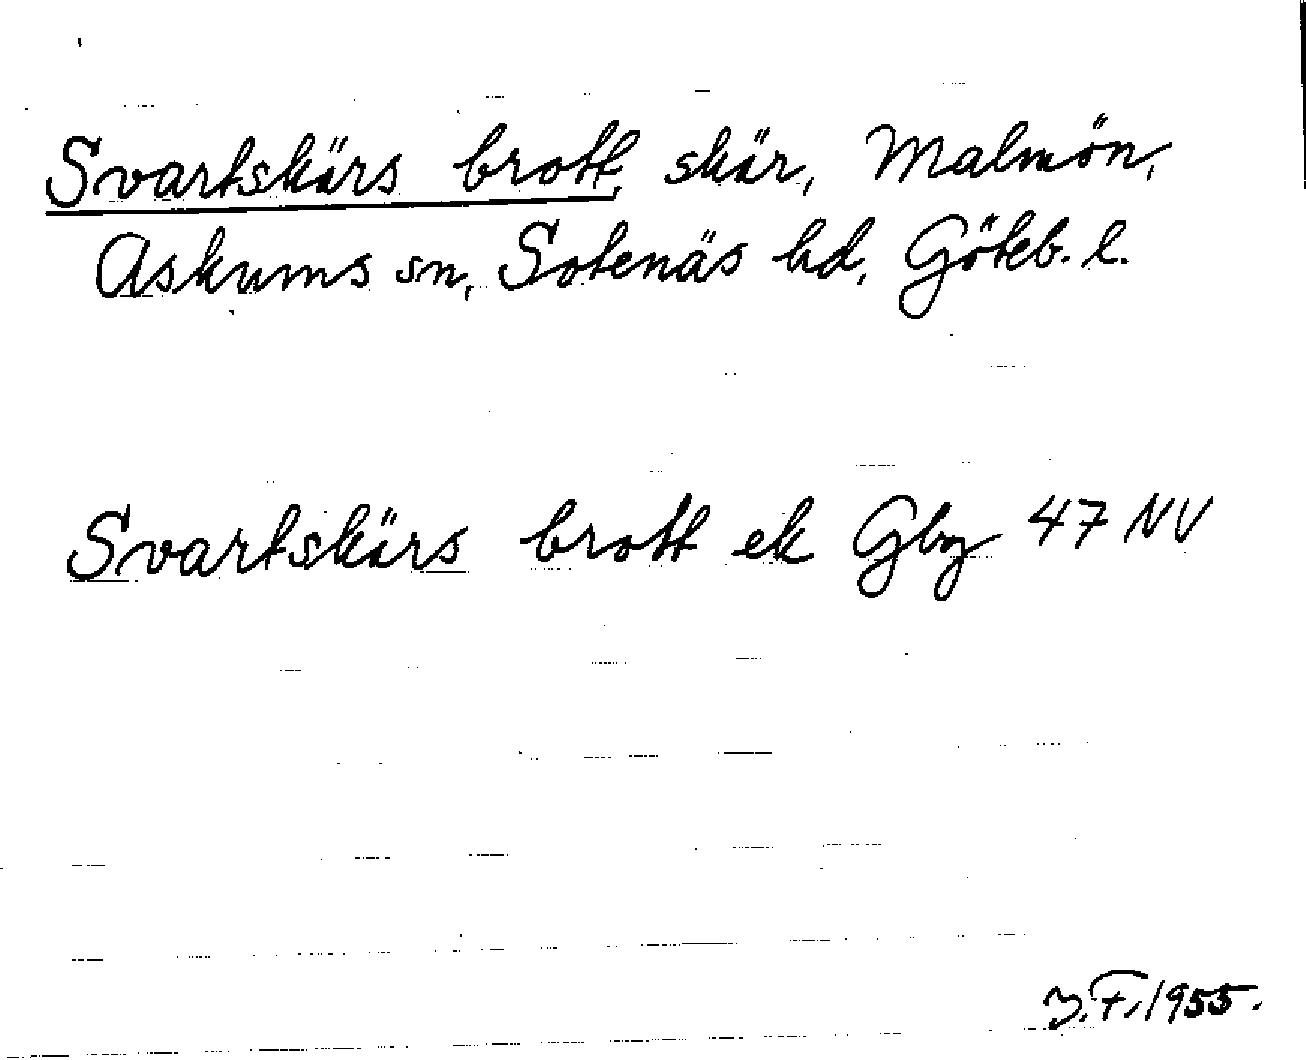 Svartskärs brott, skär, Malmön,
Askums sn, Sotenäs hd, Göteb. l.
Svartskärs brott ek Gbg 47 NV
J.F. 1955.